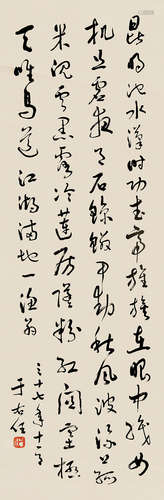 昆明池水漢時功武帝旌旗在眼中織女
機絲虛夜月石鯨鱗甲動秋風波漂菰
米沈雲黑露冷蓮房墜粉紅關塞極
天唯鳥道江湖滿地一漁翁
三十七年十
于右任